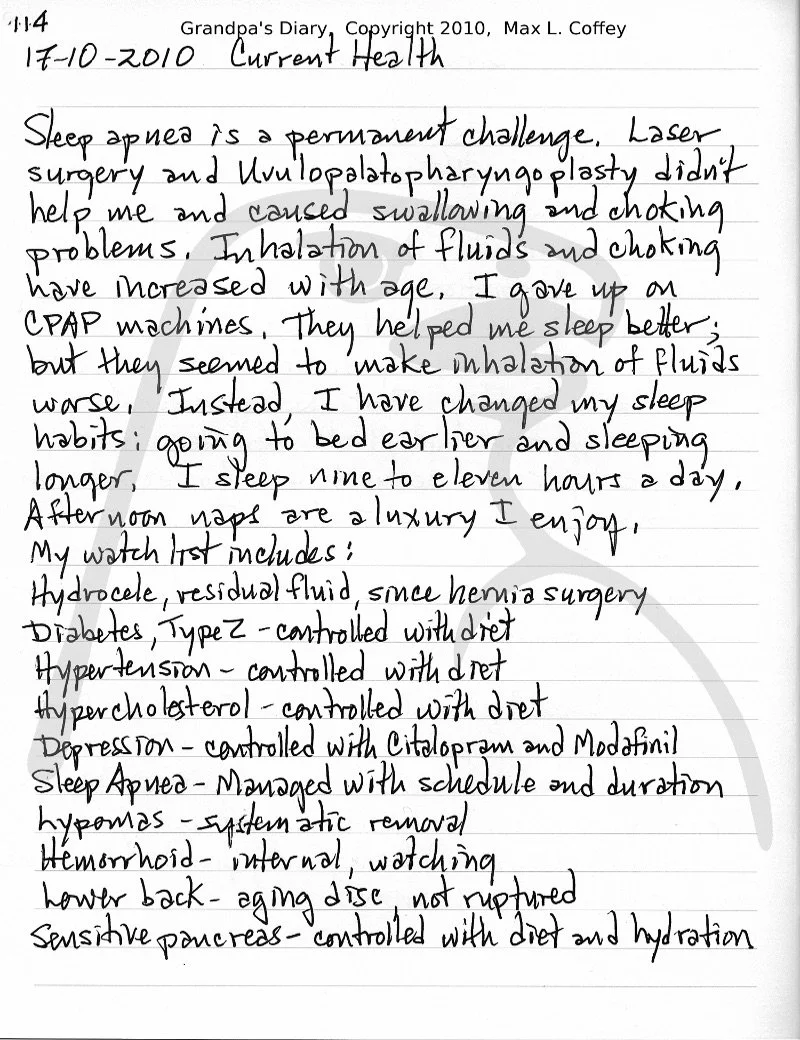 114
Grandpa's Diary, Copyright 2010, Max L. Coffey
17-10-2010 Current Health
Sleep apnea is a permanent challenge. Laser
surgery and Uvulopalatopharyngoplasty didn't
help me and caused swallowing and choking
problems. Inhalation of fluids and choking
have increased with age. I gave up on
CPAP machines. They helped me sleep better;
but they seemed to make inhalation of fluids
worse. Instead, I have changed my sleep
habits: going to bed earlier and sleeping
longer. I sleep nine to eleven hours a day.
Afternoon naps are a luxury I enjoy.
My watch list includes:
Hydrocele, residual fluid, since hernia surgery
Diabetes, Type 2 - controlled with diet
Hypertension - controlled with diet
Hypercholesterol - controlled with diet
Depression - controlled with Citalopram and Modafinil
Sleep Apnea - Managed with schedule and duration
Lypomas - systematic removal
Hemorrhoid - internal, watching
Lower back - aging disc, not ruptured
Sensitive pancreas - controlled with diet and hydration